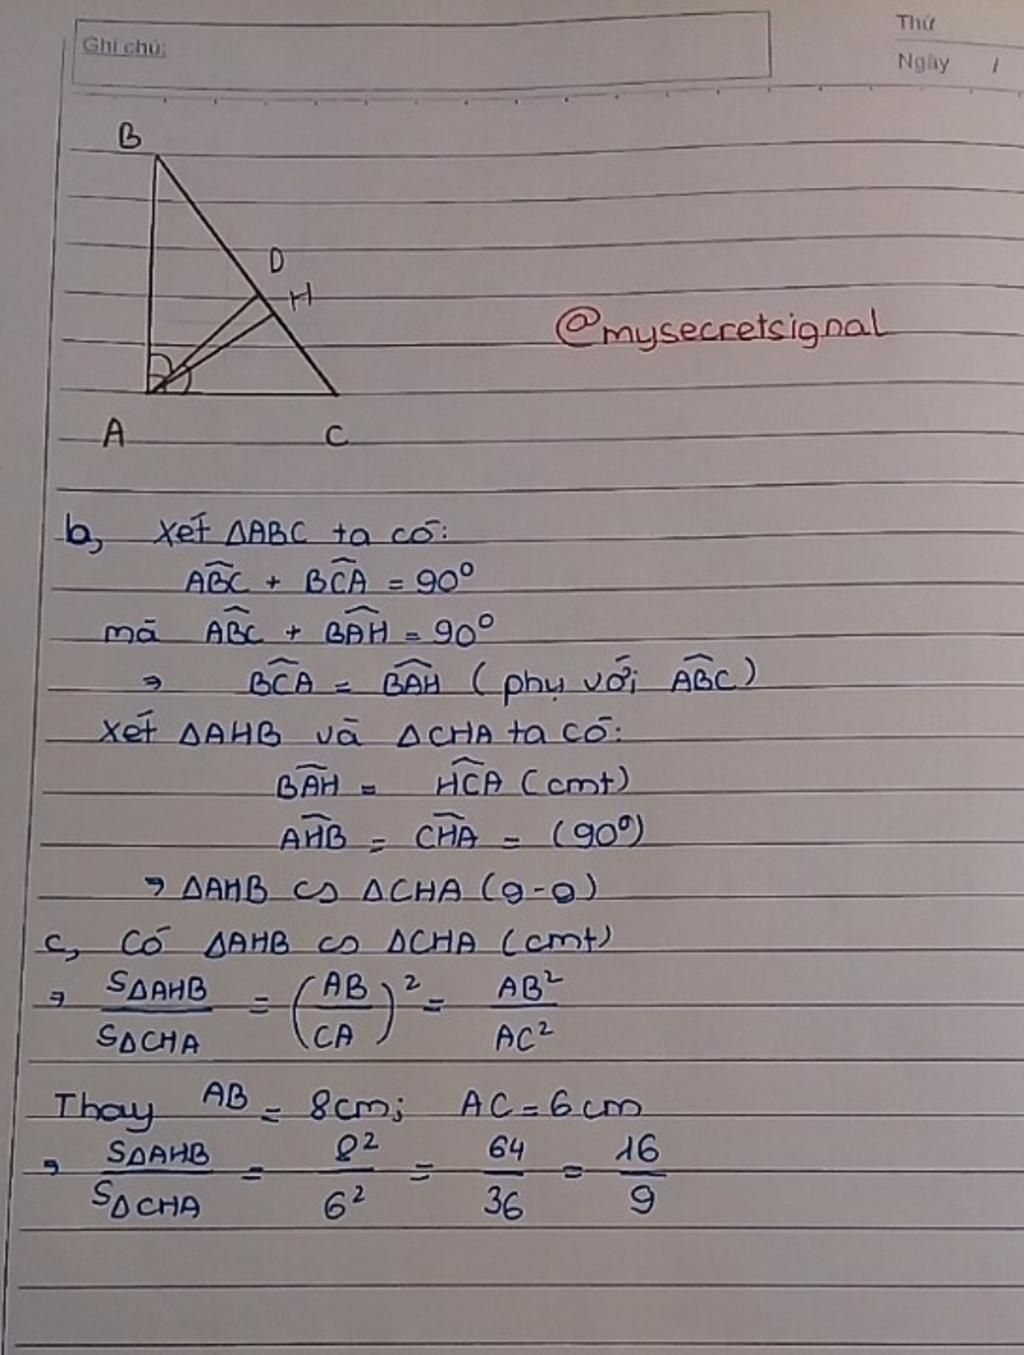 Ghi chú:
Thứ
Ngày /
B
D
H
@mysecretsignal
A C
b, Xét ΔABC ta có:
\widehat{ABC} + \widehat{BCA} = 90⁰
mà \widehat{ABC} + \widehat{BAH} = 90⁰
⇒ \widehat{BCA} = \widehat{BAH} (phụ với \widehat{ABC})
Xét ΔAHB và ΔCHA ta có:
\widehat{BAH} = \widehat{HCA} (cmt)
\widehat{AHB} = \widehat{CHA} = (90⁰)
⇒ ΔAHB ∽ ΔCHA (g-g)
c, Có ΔAHB ∽ ΔCHA (cmt)
⇒ \frac{SΔAHB}{SΔCHA} = (\frac{AB}{CA})² = \frac{AB²}{AC²}
Thay AB = 8cm; AC = 6cm
⇒ \frac{SΔAHB}{SΔCHA} = \frac{8²}{6²} = \frac{64}{36} = \frac{16}{9}